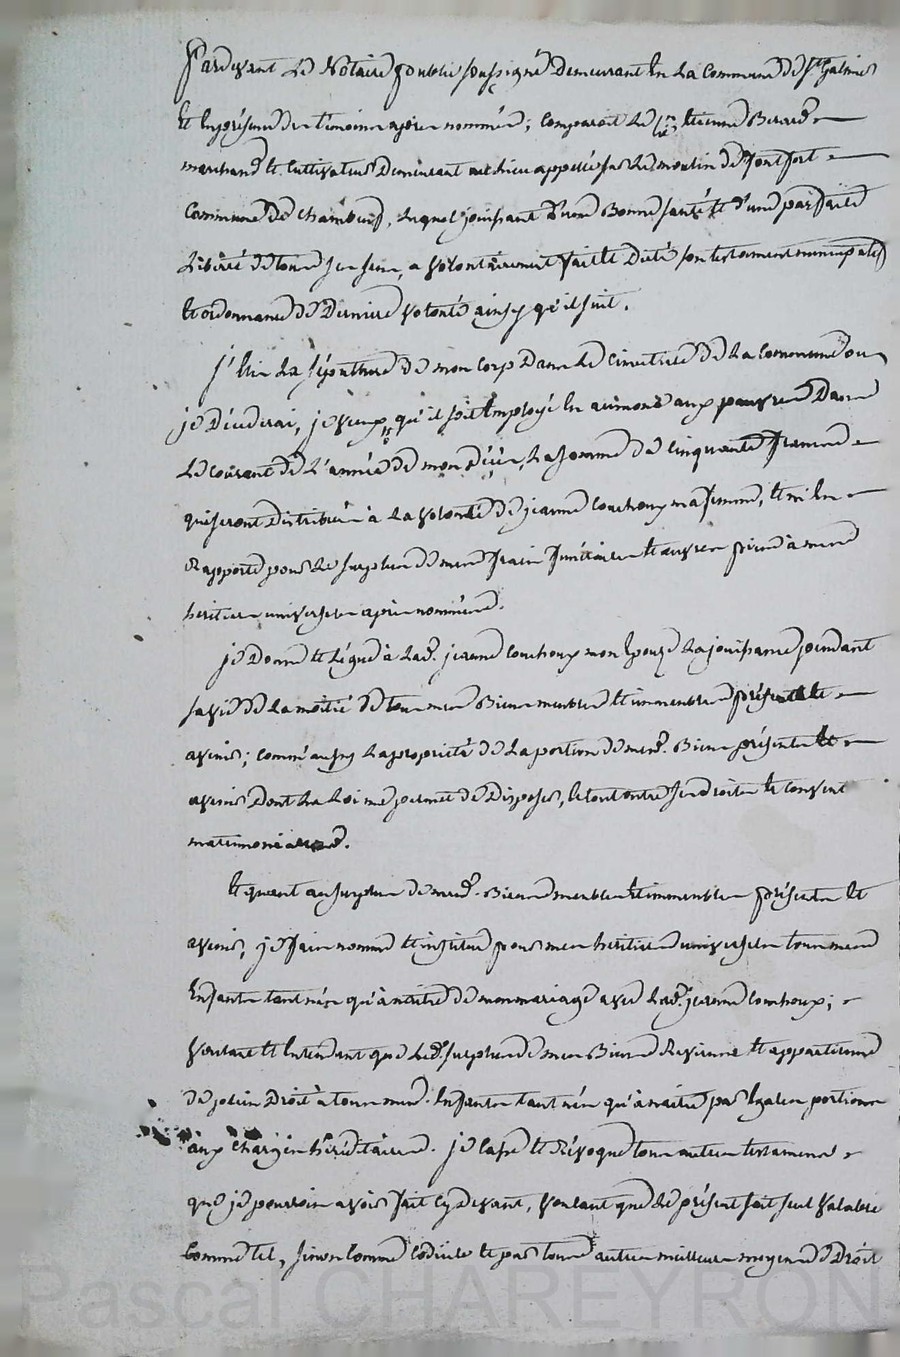 Pardevant Le Notaire public soussigné Demeurant En La Commune de St Galmier
Et En présence des témoins après nommés; Comparait Le Sr. Etienne Berard
marchand Et Cultivateur Demeurant au Lieu appellé sur Le moulin de fontfort
Commune De Chambeuf, Lequel jouissant D'une Bonne santé Et d'une parfaite
Liberté de tous ses sens, a volontairement fait Et Dicté son testament nuncupatif
Et ordonnance De Derniere volonté ainsy qu'il suit.
j'Elis La sépulture de mon Corp Dans Le Cimetiere de La Commune ou
je Décederai, je veux qu'il soit Employé En aumone aux pauvres Dans
Le Courant de L'année de mon décès, La somme de Cinquante francs
qui seront distribués à La volonté de jeanne Couchoux ma femme, Et m'En
Rapporte pour Le surplus de mes frais funéraires Et œuvres pies à mes
héritiers universels après nommés.
je Donne Et Légue à Lad. jeanne Couchoux mon Epouse La jouissance pendant
sa vie de La moitié de tous mes Biens meubles Et immeubles présents Et
avenir; comm'aussy La propriété de La portion de mesd. Biens présents Et
avenir Dont La Loi me permet de Disposer, Le tout outre ses droits Et Convent
matrimoniaux.
Et quant au surplus de mesd. Biens meubles Et immeubles présents Et
avenir, je fais nomme Et institue pour mes heritiers universels tous mes
Enfants tant nés qu'à naitre de mon mariage avec Lad. jeanne Couchoux;
voulant Et Entendant que Led. surplus de mes Biens Revienne Et appartienne
de plein Droit à tous mesd. Enfants tant nés qu'à naitre par Egales portions
aux Charges héréditaires. je Casse Et Révoque tous autres testaments
que je pourrois avoir fait Cy Devant, voulant que Le présent soit seul valable
Comme tel, sinon Comme Codicile Et par tous autres meilleurs moyens de Droit
Pascal CHAREYRON